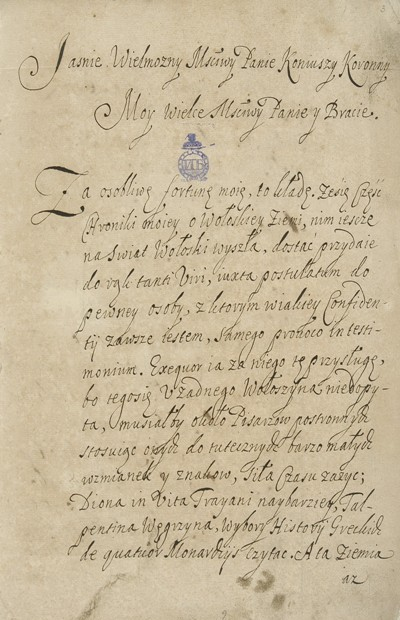 3
Jasnie Wielmozny Mściwy Panie Koniuszy Koronny
Moy Wielce Mściwy Panie y Bracie.
Za osobliwę fortunę moię, to kładę. Zesię Część
Chroniki moiey o Wołoskiey Ziemi, nim ieszcze
na swiat Wołoski wyszła, dostać przydaie
do rąk tanti Viri, iuxta postulatum do
pewney osoby, z ktorym wialkiey Confiden-
tij zawsze iestem, samego provoco in testi-
monium. Exequor ia za niego tę przysługę,
bo tegosię v żadnego Wołoszyna niedopy-
ta, musiałby około Pisarzow postronnych
stosuiąc onych do tutecznych barzo małych
wzmianek y znakow, siła Czasu zażyc;
Diona in Vita Trayani naybarziey, Tal-
pentina Węgrzyna, Wybory History Greckich
de quatuor Monarchijs Czytac. A ta Ziemia
iż